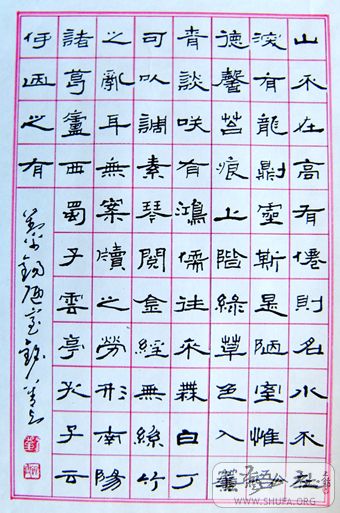 山不在高有僊則名水不在
深有龍則靈斯是陋室惟吾
德馨苔痕上階綠草色入簾
青談咲有鴻儒往來無白丁
可以調素琴閱金經無絲竹
之亂耳無案牘之勞形南陽
諸葛廬西蜀子雲亭孔子云
何陋之有
劉禹錫陋室銘
WWW.SHUFA.ORG